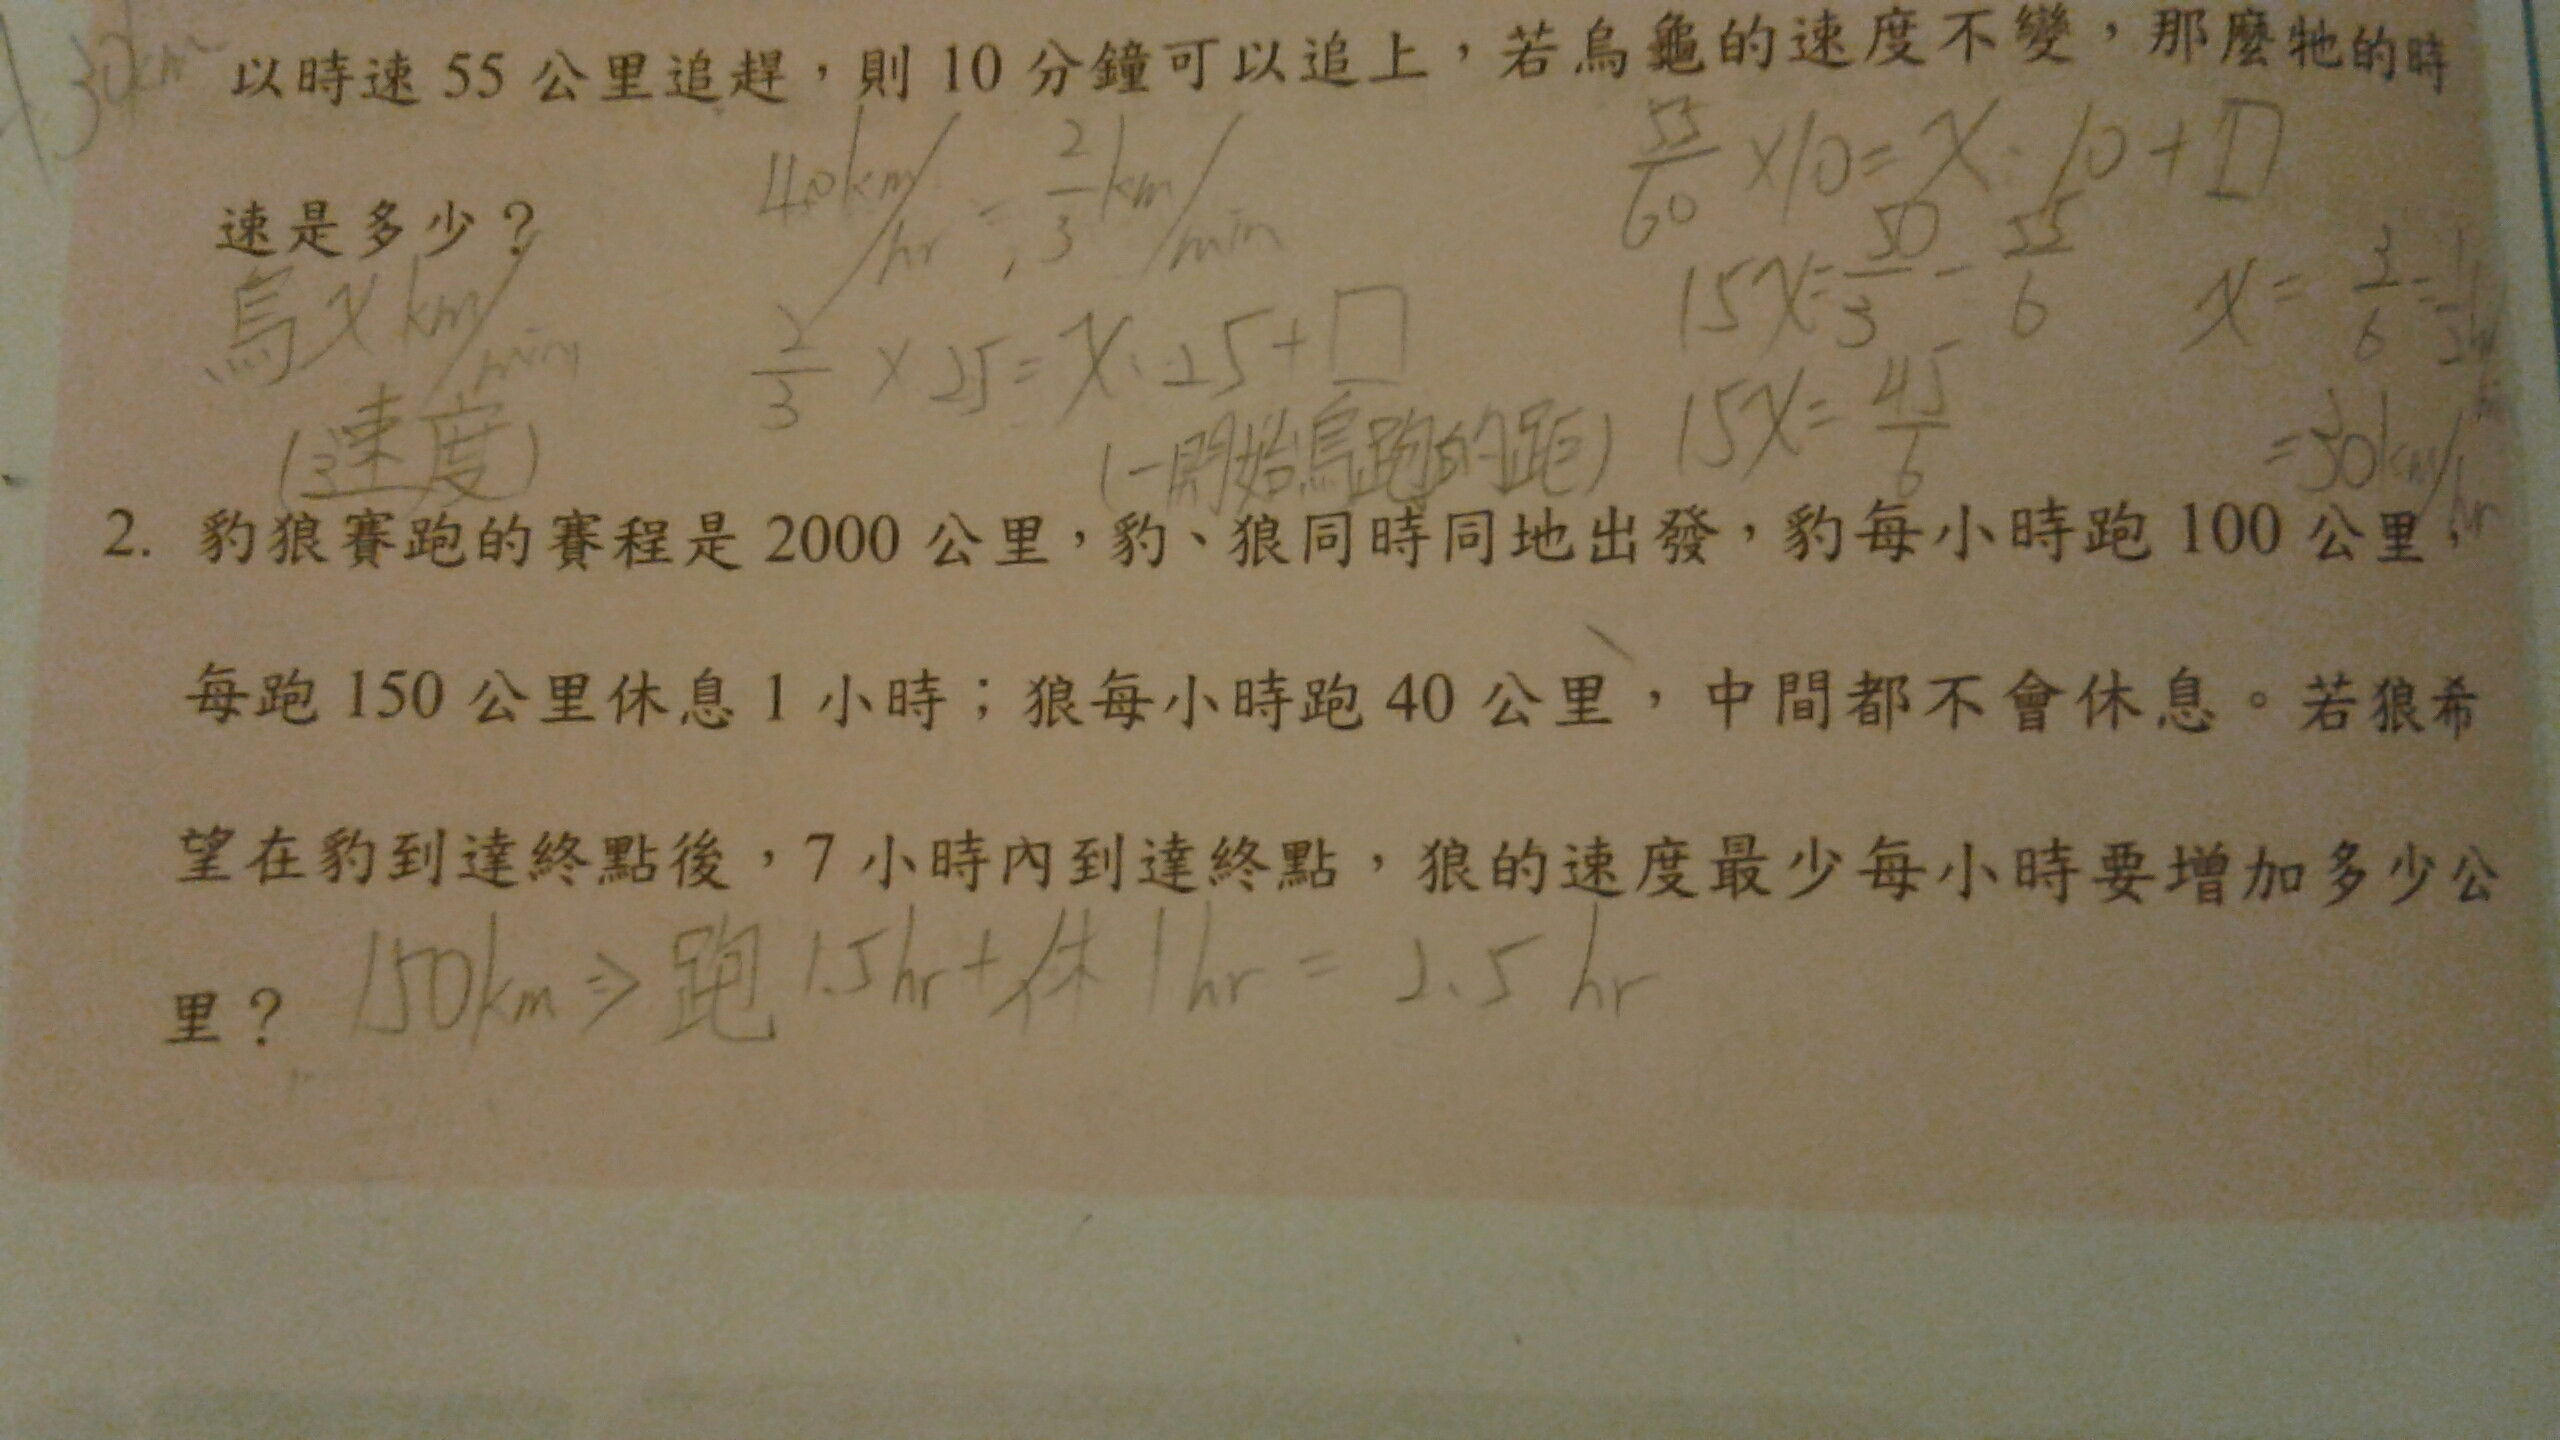 30km
以時速 55 公里追趕，則 10 分鐘可以追上，若烏龜的速度不變，那麼牠的時
40km/hr = 2/3 km/min
55/60 ×10= X·10+□
速是多少？
烏 X km/min
(速度)
2/3 × 25= X·25+□
(一開始烏跑的距)
15X= 50/3 - 55/6
15X= 45/6
X= 3/6 = 1/2
=30km/hr
2. 豹狼賽跑的賽程是 2000 公里，豹、狼同時同地出發，豹每小時跑 100 公里，
每跑 150 公里休息 1 小時；狼每小時跑 40 公里，中間都不會休息。若狼希
望在豹到達終點後，7 小時內到達終點，狼的速度最少每小時要增加多少公
里？ 150km⇒跑 1.5hr+休 1hr = 2.5 hr